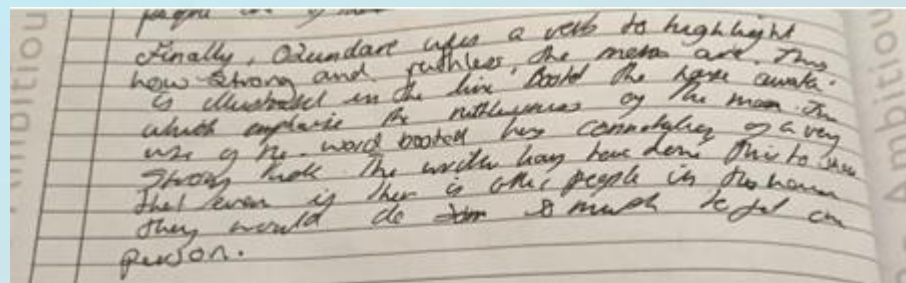 people in
Finally, Ozundare uses a verb to highlight
how strong and ruthless, the mens are. This
is illustrated in the line 'booted the house awake'
which emphasise the ruthlessness of the man. The
use of the word booted has connotations of a very
strong kick. The writer may have done this to show
that even if ther is other people in the house
they would do so much to get one
person.
Ambition
Ambition